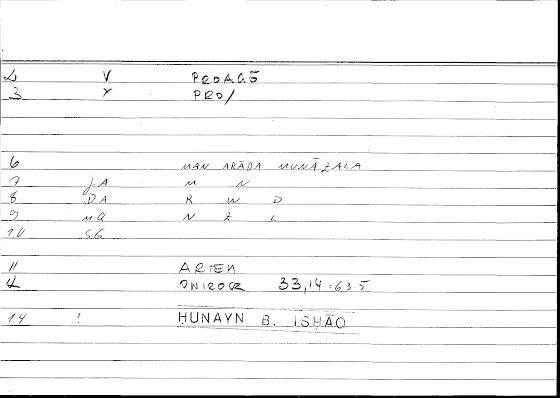 2 V PROAGŌ
3 Y PRO/
6 MAN ARĀDA MUNĀZALA
7 JA M N
8 DA R W D
9 MQ N Z L
10 SG
11 ARTEM
4 ONIROCR 33,14 = 635
14 ! HUNAYN B. ISHĀQ